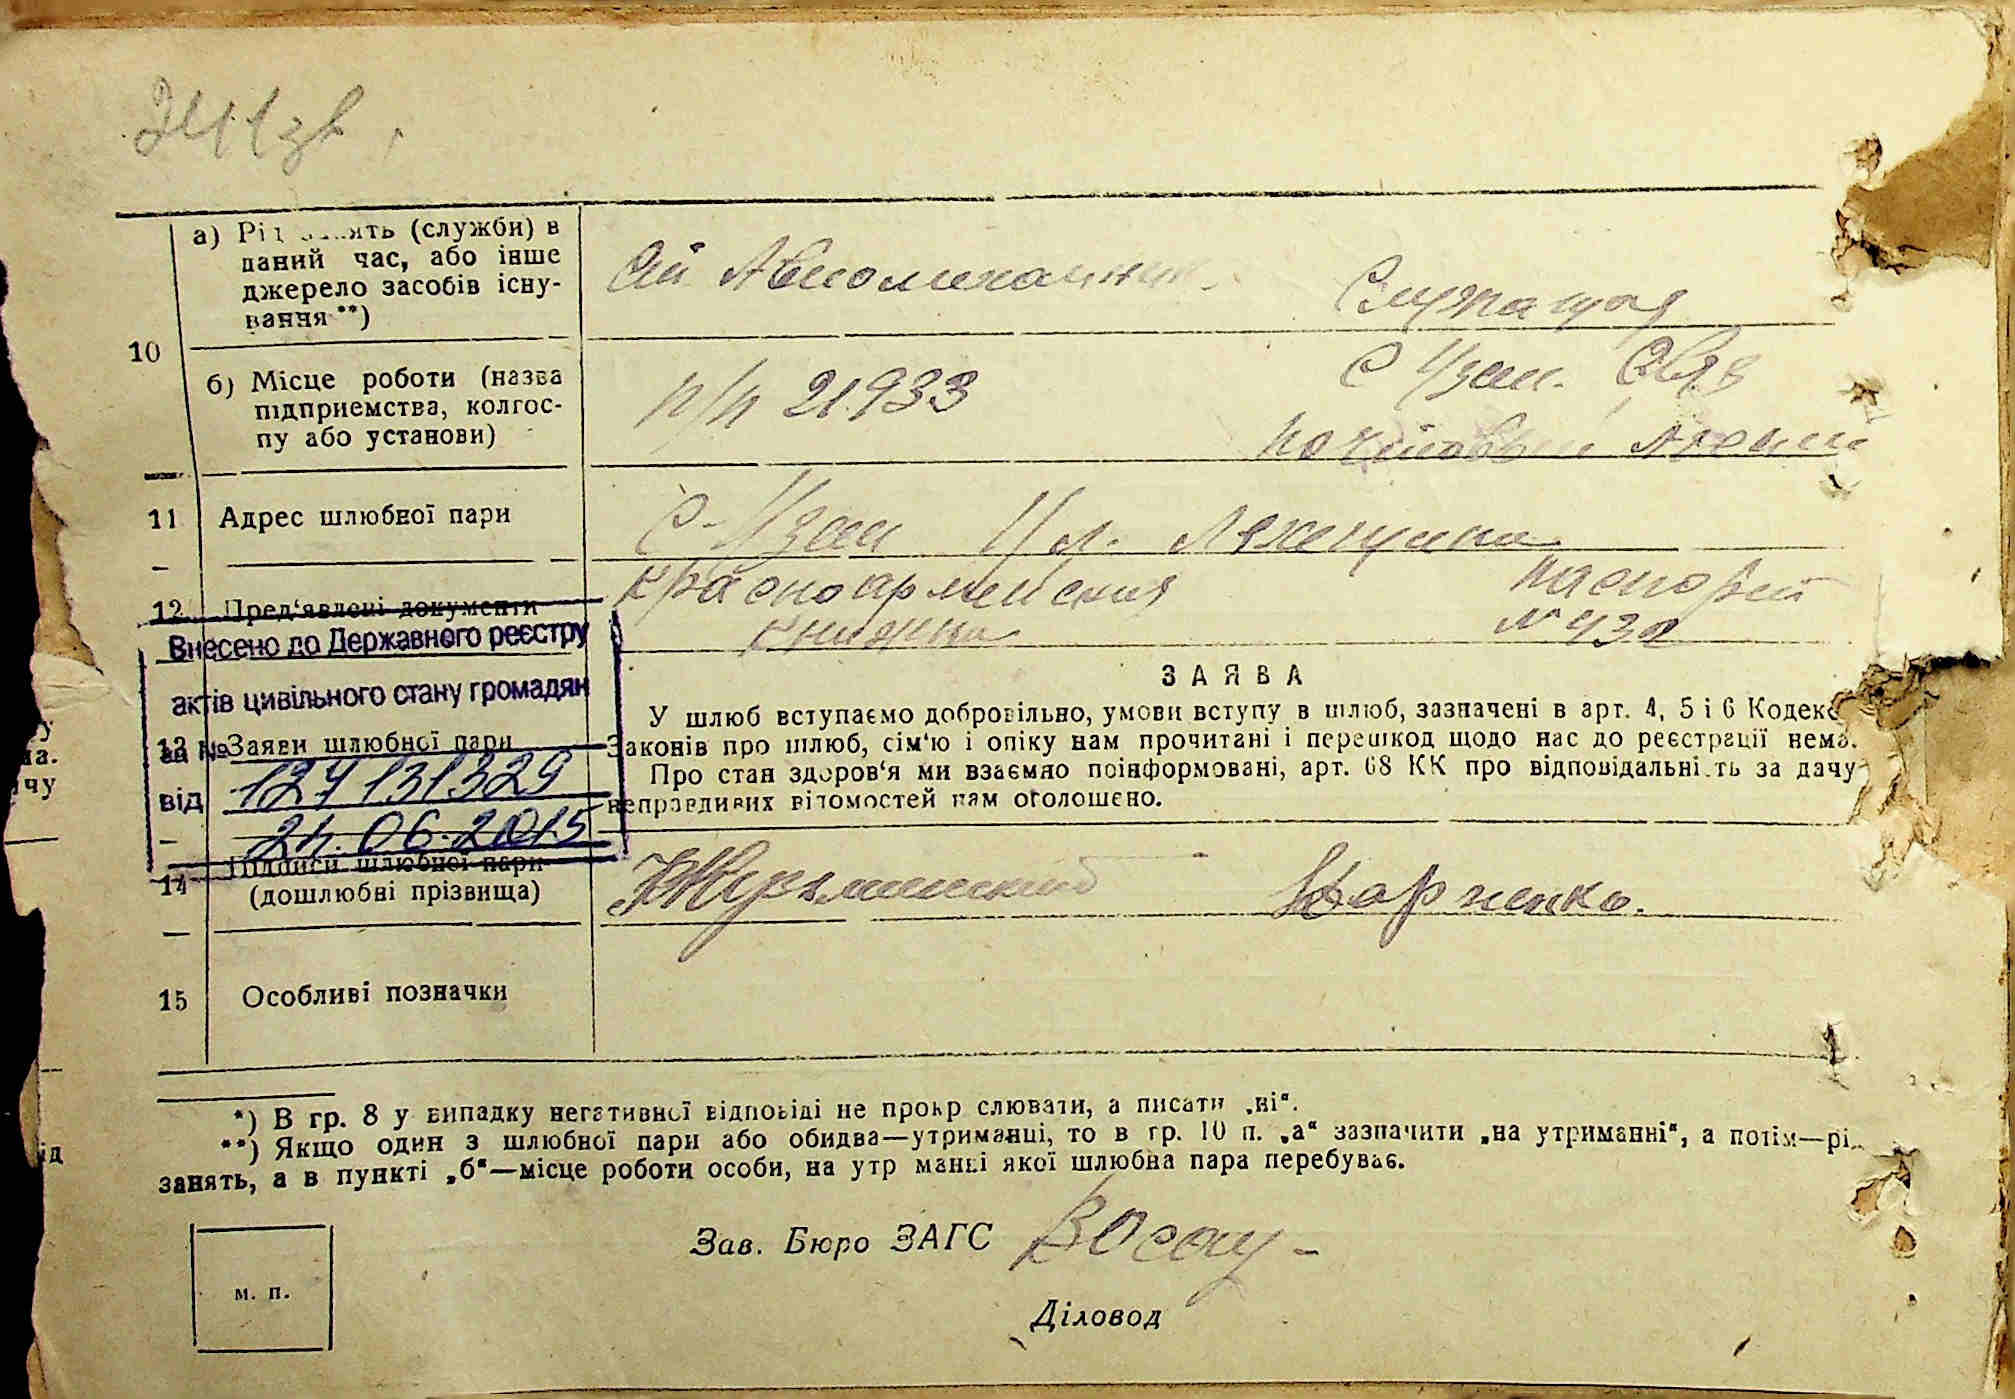 а) Рід занять (службии) в
даний час, або інше
джерело засобів існу-
вання **)
Служащая
10
б) Місце роботи (назва
підприємства, колгос-
пу або установи)
п/п 21933
почтовый Агент
11 Адрес шлюбної пари
12 Пред'явлені документи
Красноармейская паспорт
книжка №
Внесено до Державного реєстру
актів цивільного стану громадян
за №
127131329
від
24.06.2015
13 Заяви шлюбної пари
ЗАЯВА
У шлюб вступаємо добровільно, умови вступу в шлюб, зазначені в арт. 4, 5 і 6 Кодекс
Законів про шлюб, сім'ю і опіку нам прочитані і перешкод щодо нас до реєстрації нема.
Про стан здоров'я ми взаємно поінформовані, арт. 68 КК про відповідальність за дачу
неправдивих відомостей нам оголошено.
14 Підписи шлюбної пари
(дошлюбні прізвища)
15 Особливі позначки
*) В гр. 8 у випадку негативної відповіді не прокр слювати, а писати „ні“.
**) Якщо один з шлюбної пари або обидва—утриманці, то в гр. 10 п. „а“ зазначити „на утриманні“, а потім—рі
занять, а в пункті „б“—місце роботи особи, на утр манні якої шлюбна пара перебуває.
Зав. Бюро ЗАГС
м. п.
Діловод